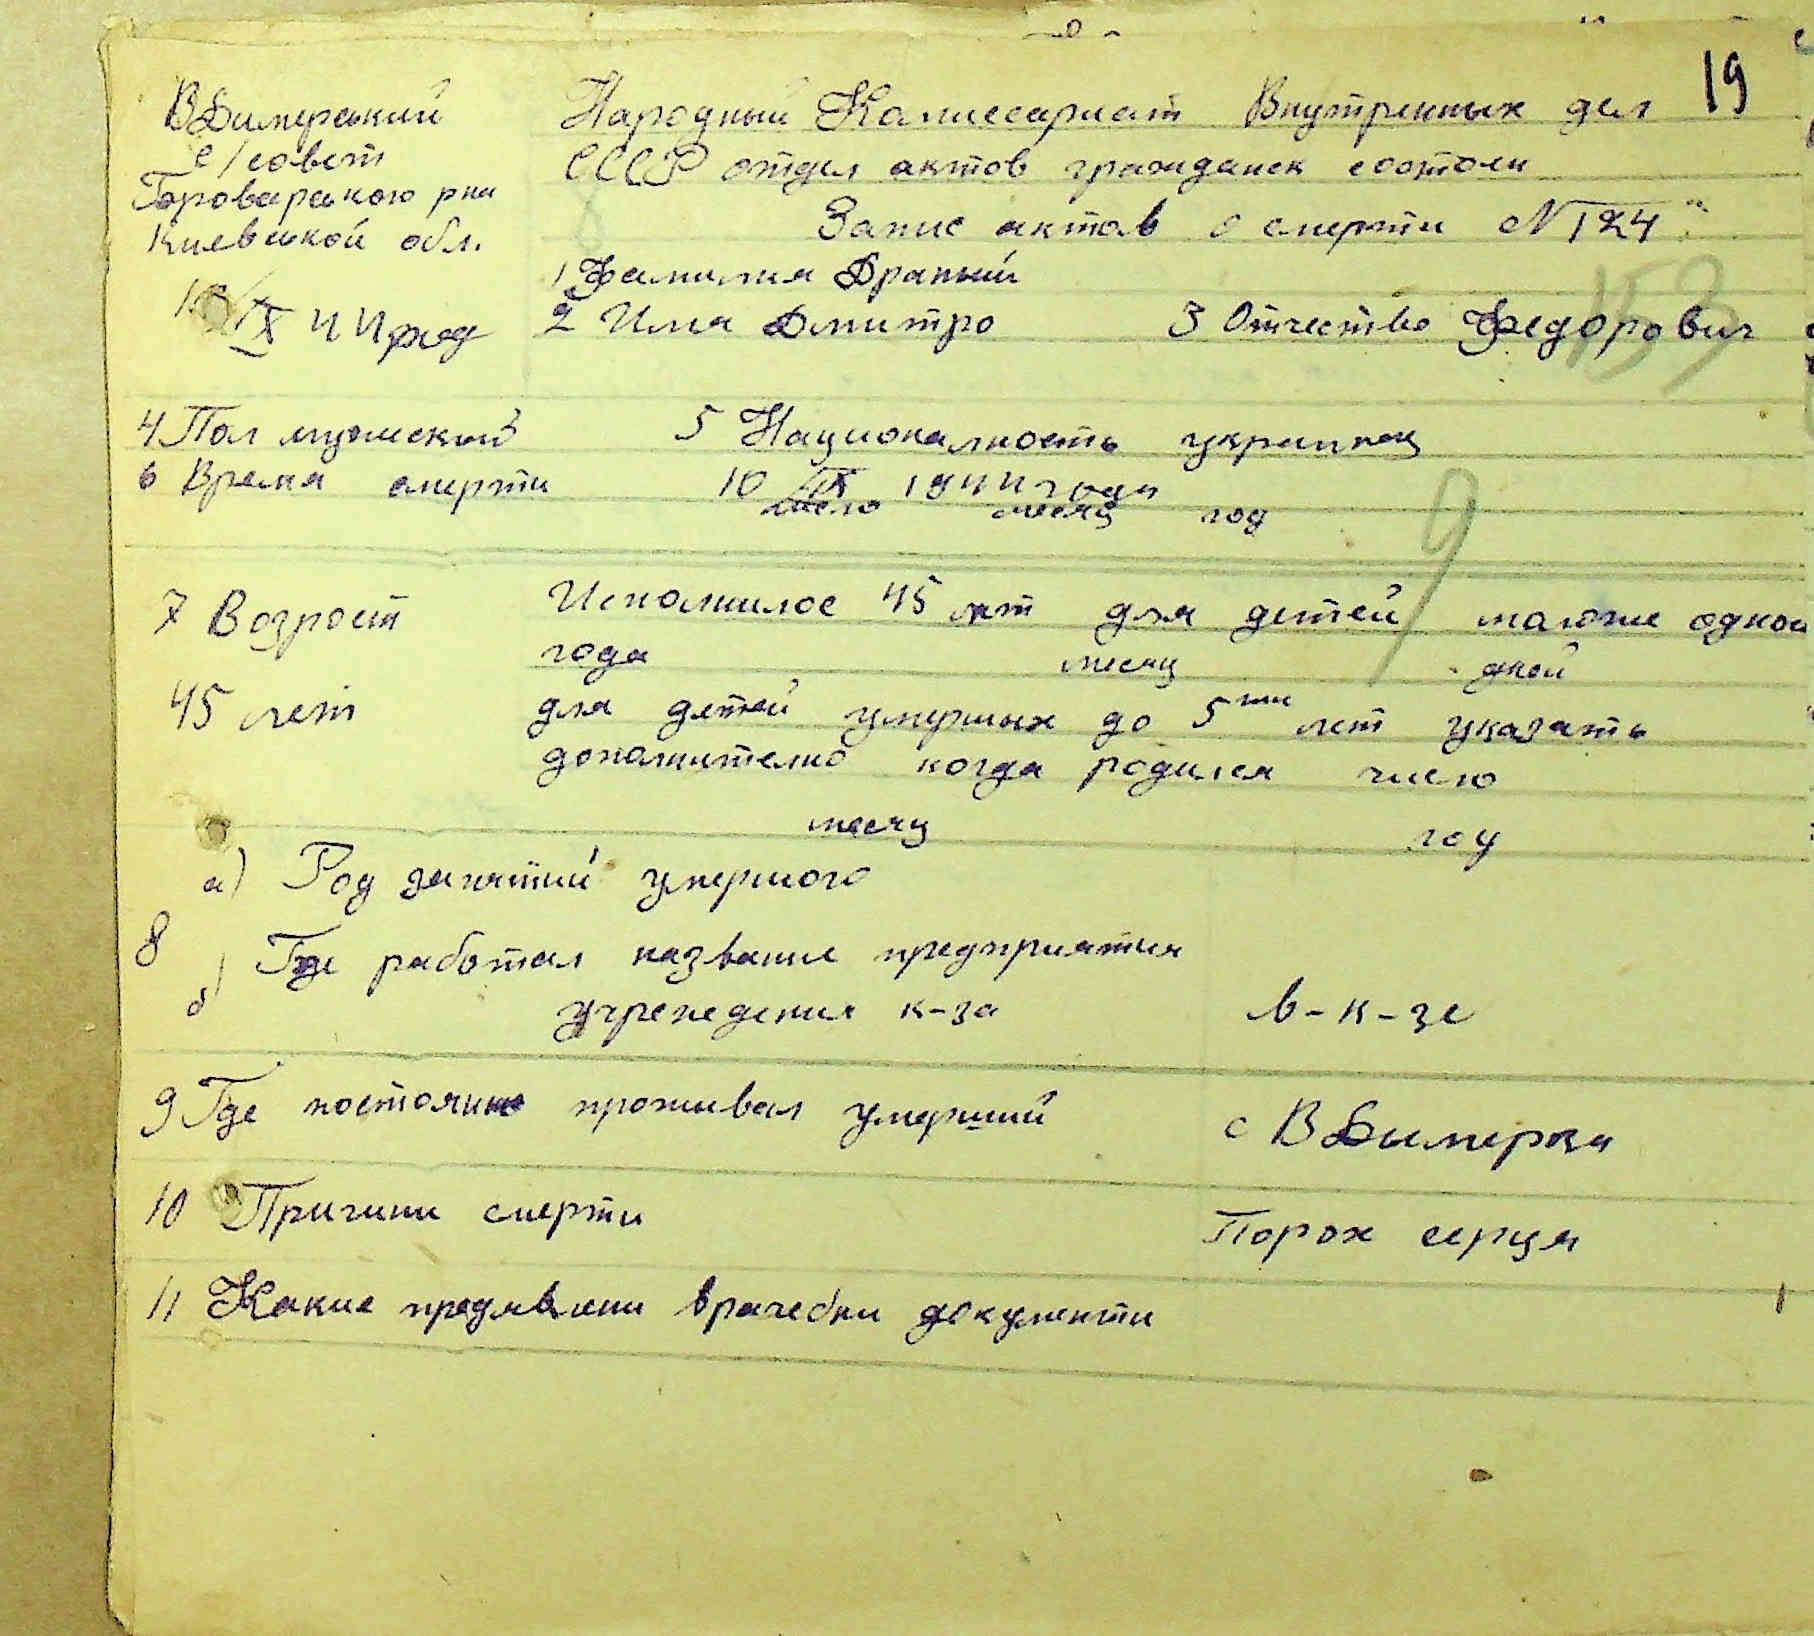 19
ВДимерський
с/совет
Броварського рна
Киевской обл.
IX 44 год
Народный Комиссариат Внутренных дел
СССР отдел актов гражданск состоян
Запис актов о смерти N 124
153
1 Фамилия Драпий
2 Имя Дмитро 3 Отчество Федорович
4 Пол мужеский 5 Националность украинец
6 Время смерти 10 IX 1944 года
число месяц год
9
7 Возрост Исполнилос 45 лет для детей маложе одной
года месяц дней
45 лет для детей умерших до 5 ти лет указать
дополнително когда родился число
месяц год
а) Род занятий умершого
8
б) Где работал название предприятия
учреждения к-за в-к-зе
9 Где постоянно проживал умерший с ВДимерка
10 Причини смерти Порох серця
11 Какие предявлени врачебни документи